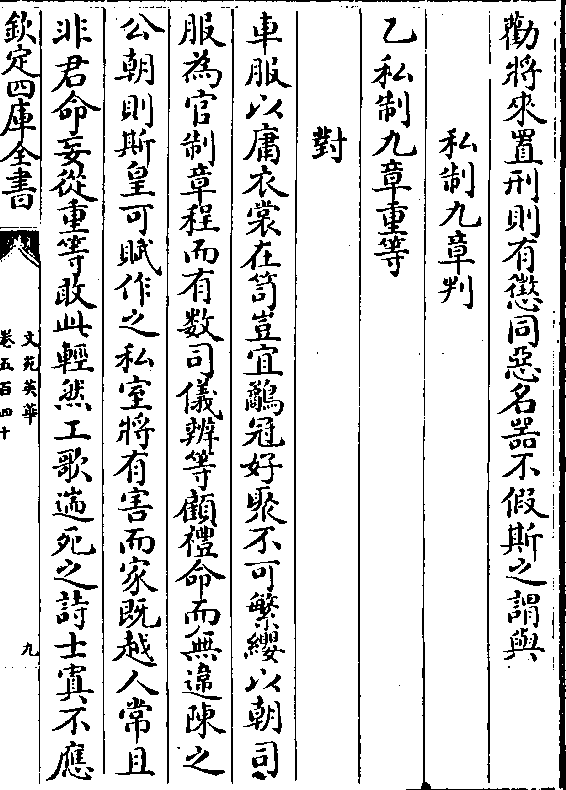 勸將來置刑則有懲同惡名器不假斯之謂與
私制九章判
乙私制九章重等
對
車服以庸衣裳在笥豈宜鷸冠好聚不可繁纓以朝司
服為官制章程而有数司儀辨等顧禮命而無違陳之
公朝則斯皇可賦作之私室將有害而家既越人常且
非君命妄從重等敢此輕然工歌遄死之詩士寘不應
欽定四庫全書
文苑英華
卷五百四十
九